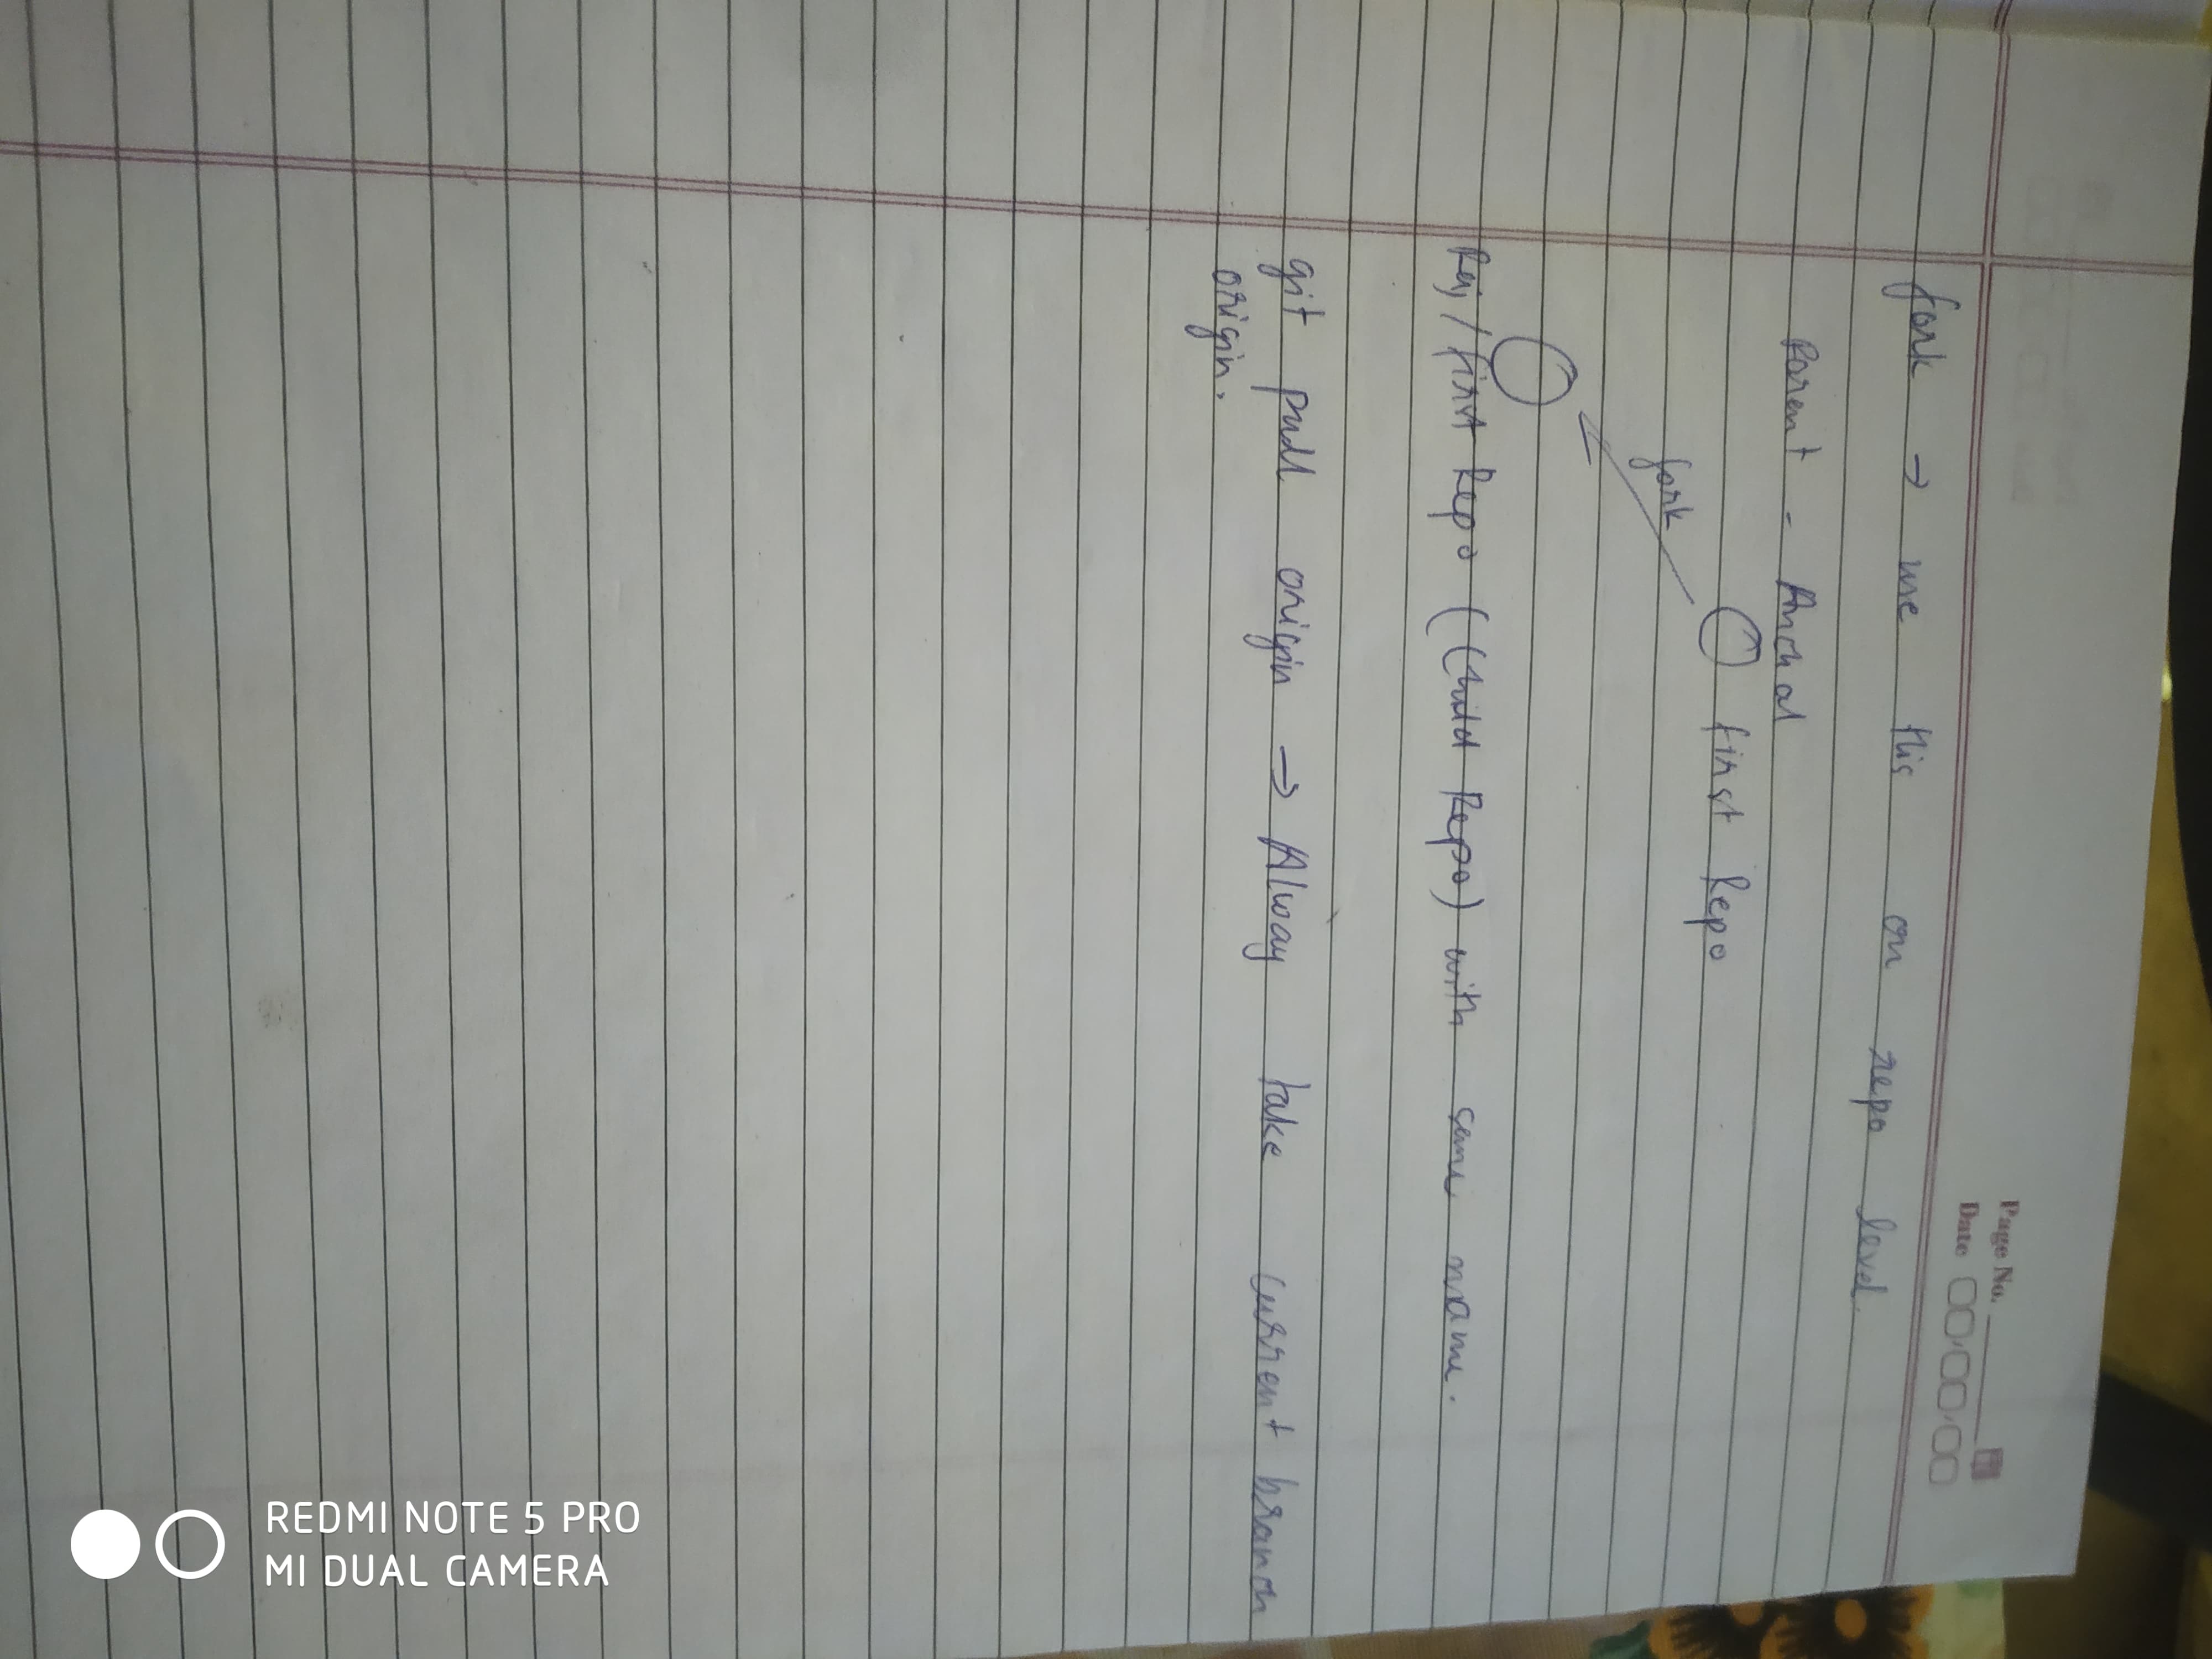 Page No.
Date
fork → use this on repo level.
Parent - Anchal
first Repo
fork
Raj / first Repo (Child Repo) with same name.
git pull origin → Alway take current branch
origin.
REDMI NOTE 5 PRO
MI DUAL CAMERA